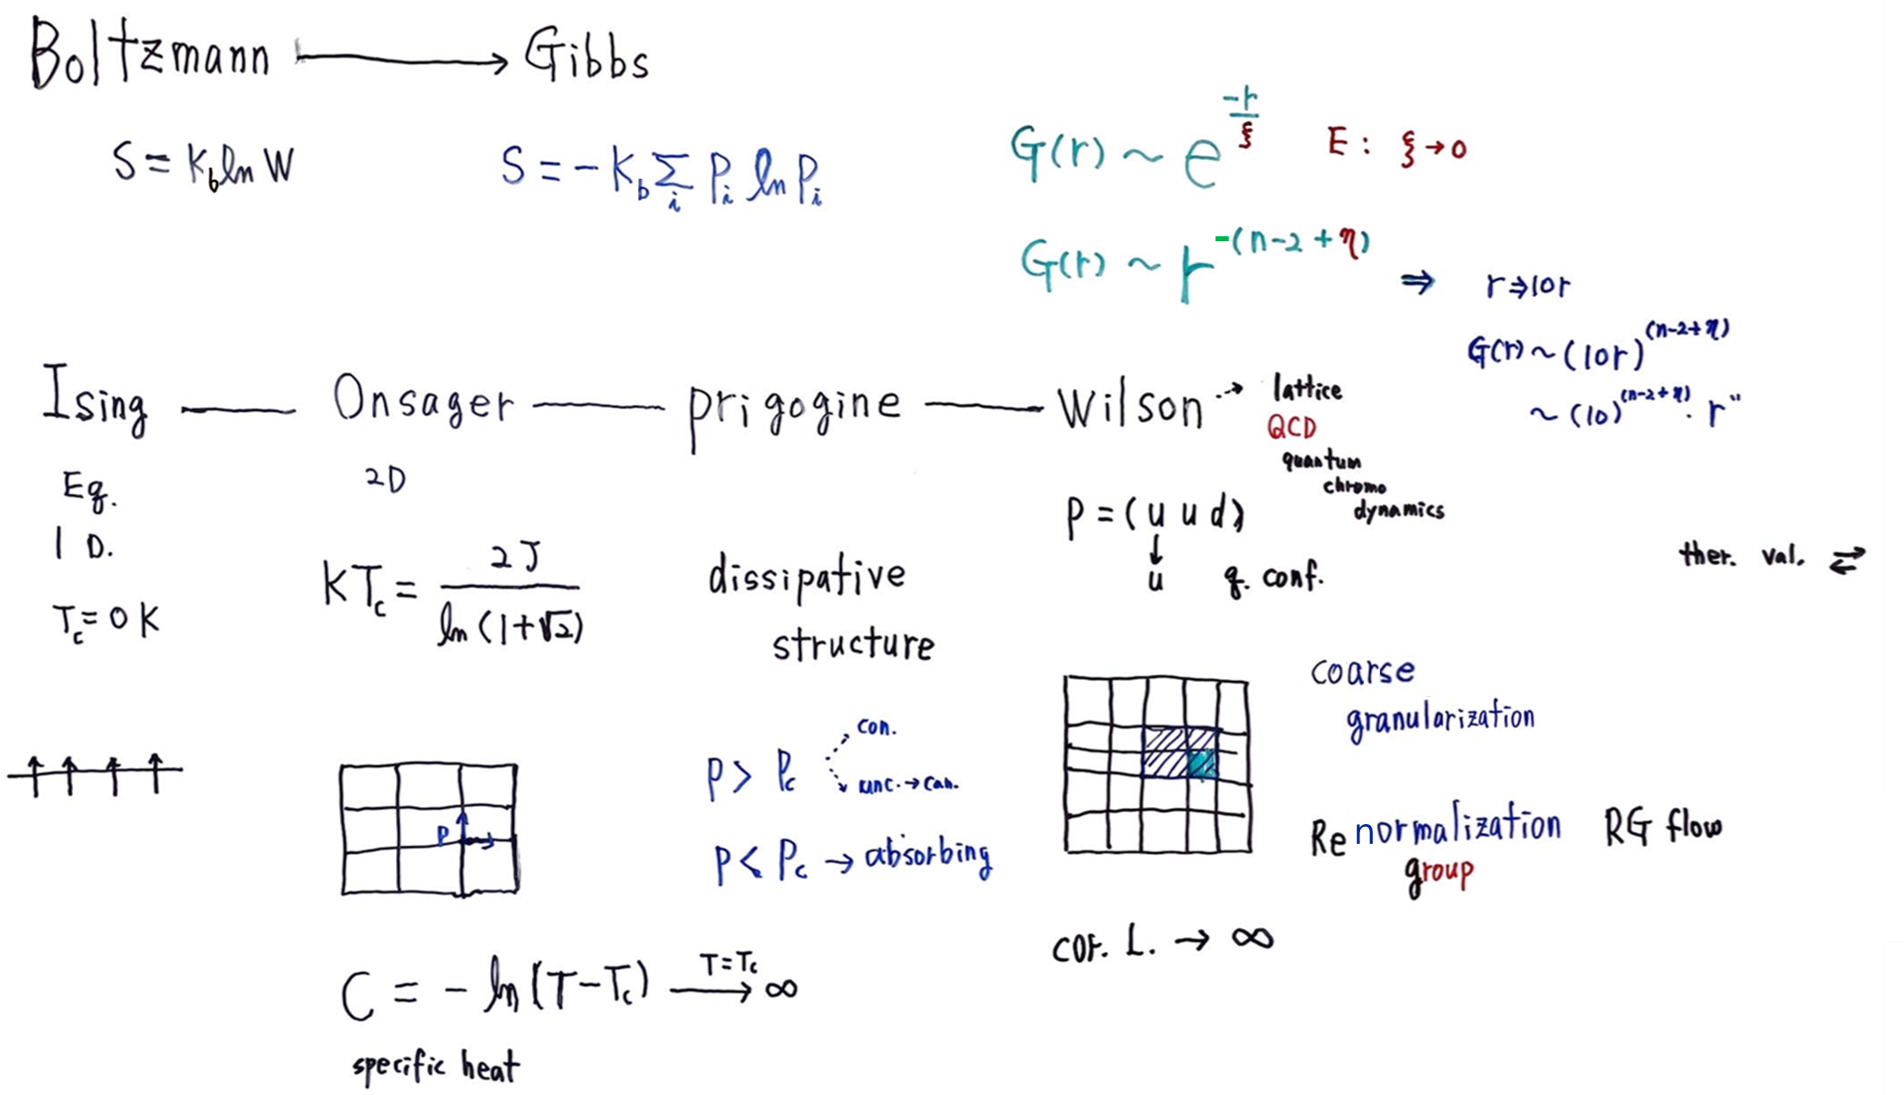 Boltzmann ⟶ Gibbs
S = K_b ln W
S = - K_b Σ_i P_i ln P_i
G(r) ~ e^(-r/ξ)   E : ξ → 0
G(r) ~ r^-(n-2+η) ⇒ r ⇒ 10r
G(r) ~ (10r)^(n-2+η)
~ (10)^(n-2+η) · r^"
Ising — Onsager — prigogine — Wilson ⇢ lattice
QCD
quantum
chromo
dynamics
Eq.
1 D.
T_c = 0 K
2D
KT_c = 2J / ln(1+√2)
dissipative
structure
P = (u u d)
↓
u   q. conf.
ther. val. ⇄
P > P_c
con.
unc. → can.
P < P_c → absorbing
P
coarse
granularization
Renormalization   RG flow
group
cor. L. → ∞
C = - ln(T-T_c) ⟶ ∞
T=T_c
specific heat